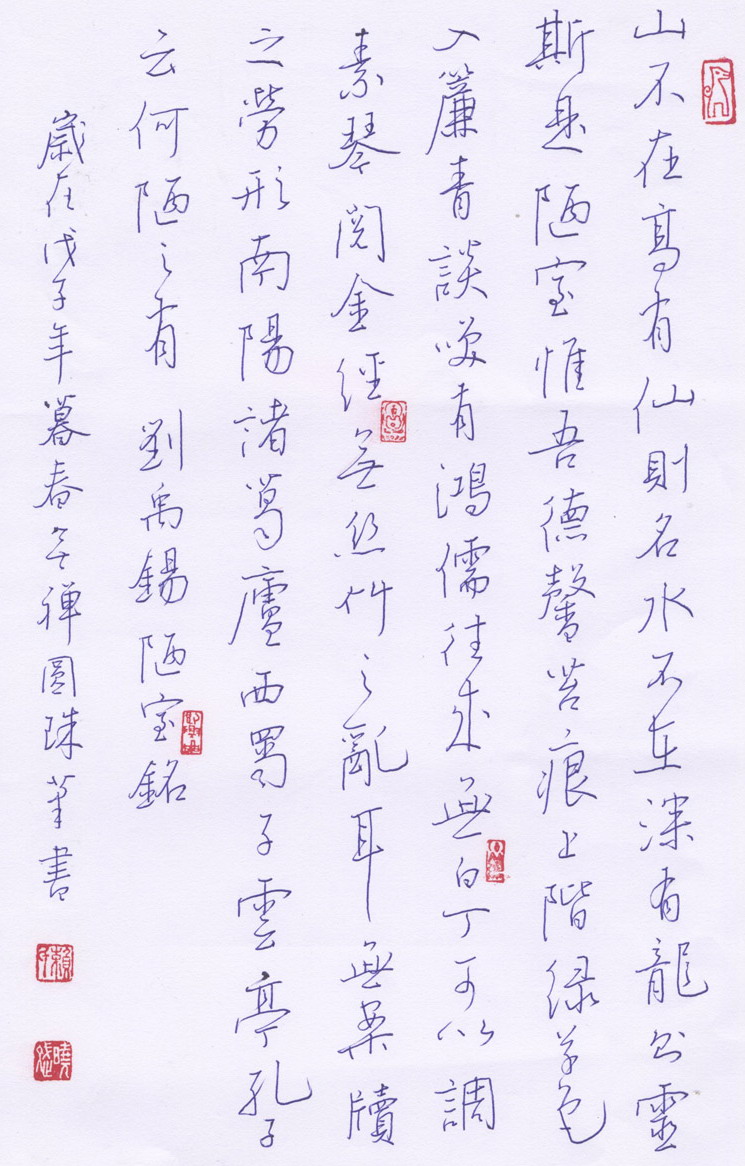 山不在高有仙則名水不在深有龍則靈
斯是陋室惟吾德馨苔痕上階綠草色
入簾青談笑有鴻儒往來無白丁可以調
素琴閱金經無絲竹之亂耳無案牘
之勞形南陽諸葛廬西蜀子雲亭孔子
云何陋之有 劉禹錫陋室銘
歲在戊子年暮春禪圓珠筆書